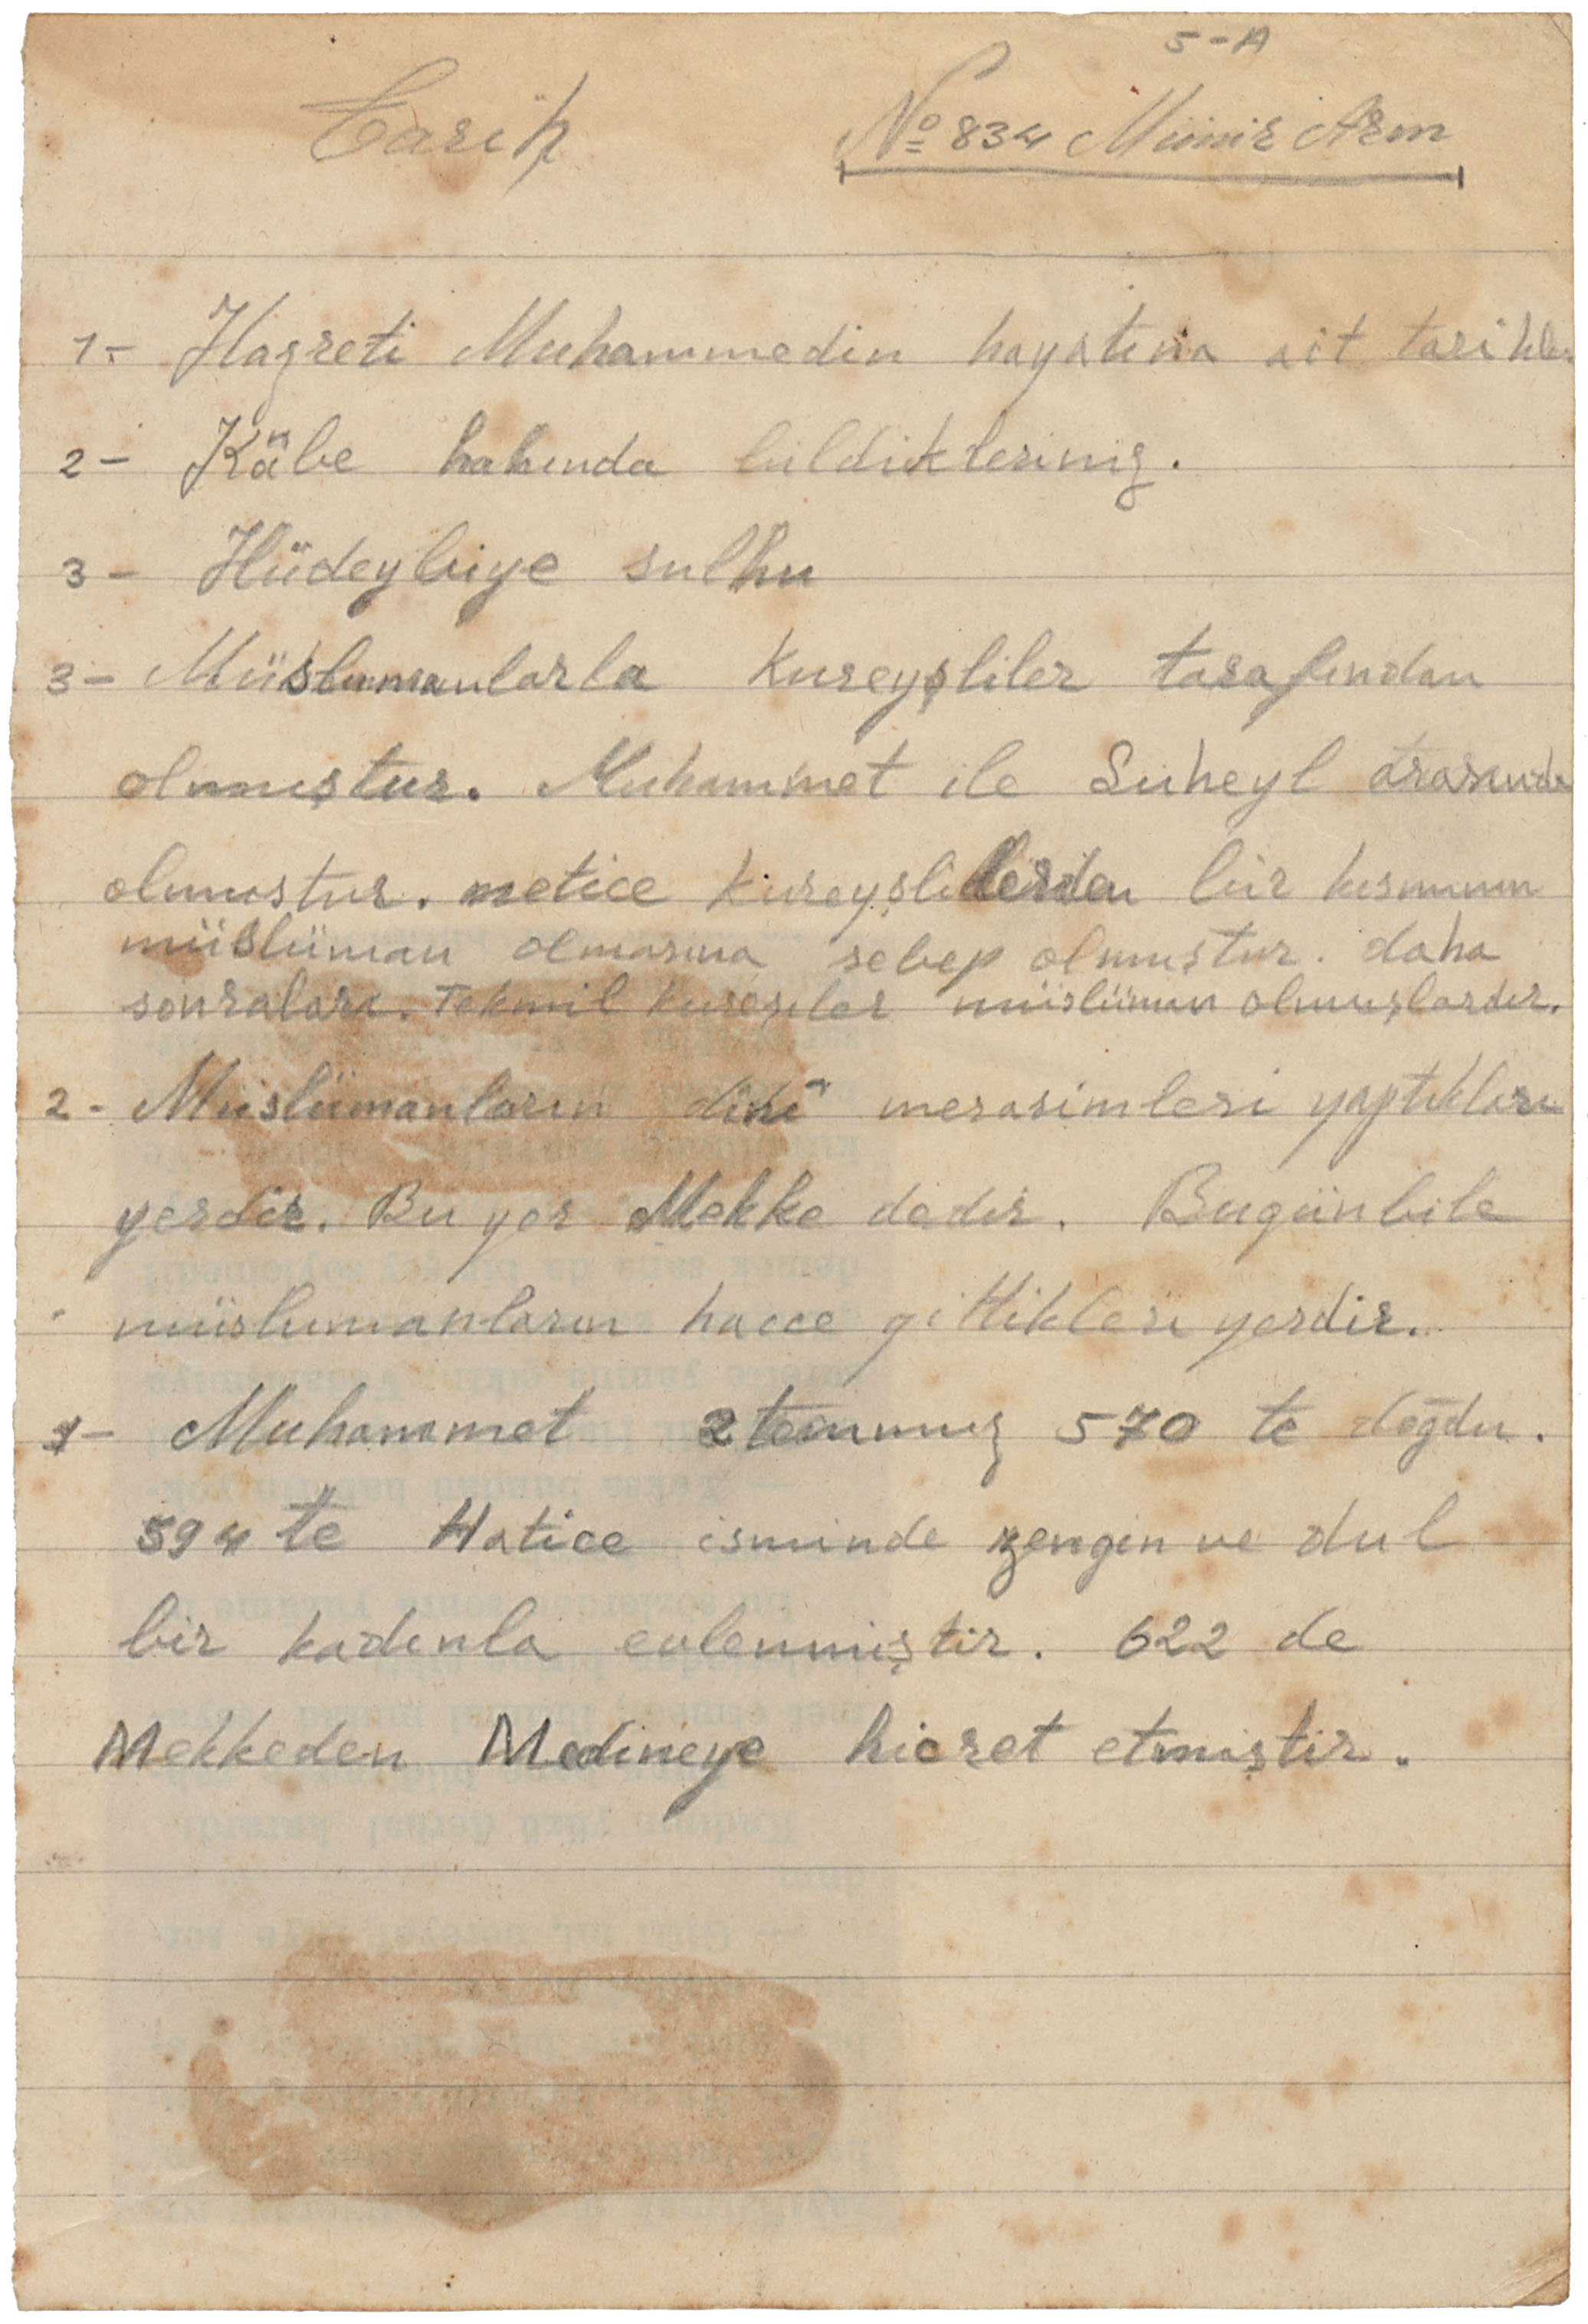 5-A
Tarih
No 834 Münir Arın
1- Hazreti Muhammedin hayatına ait tarihler
2- Kâbe hakında bildikleriniz.
3- Hüdeybiye sulhu
3- Müslumanlarla Kureyşliler tarafından
olmuştur. Muhammet ile Süheyl arasında
olmustur. netice Kureyşlilerden bir kısmının
müslüman olmasına sebep olmuştur. daha
sonraları. Tekmil kureşiler müslüman olmuşlardır.
2- Müslümanların dinî merasimleri yaptıkları
yerdir. Bu yer Mekke dedir. Bugünbile
müslumanların hacce gittikleri yerdir.
1- Muhammet 2 temmuz 570 te doğdu.
594 te Hatice isminde zengin ve dul
bir kadınla evlenmiştir. 622 de
Mekkeden Medineye hicret etmiştir.